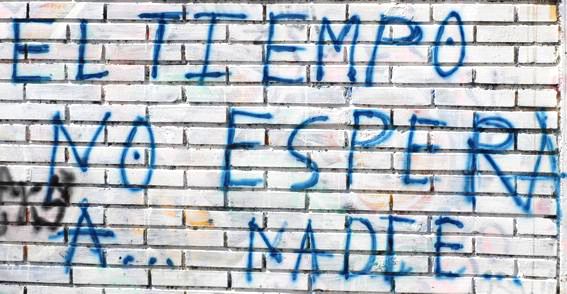 EL TIEMPO
NO ESPERA
A... NADIE...